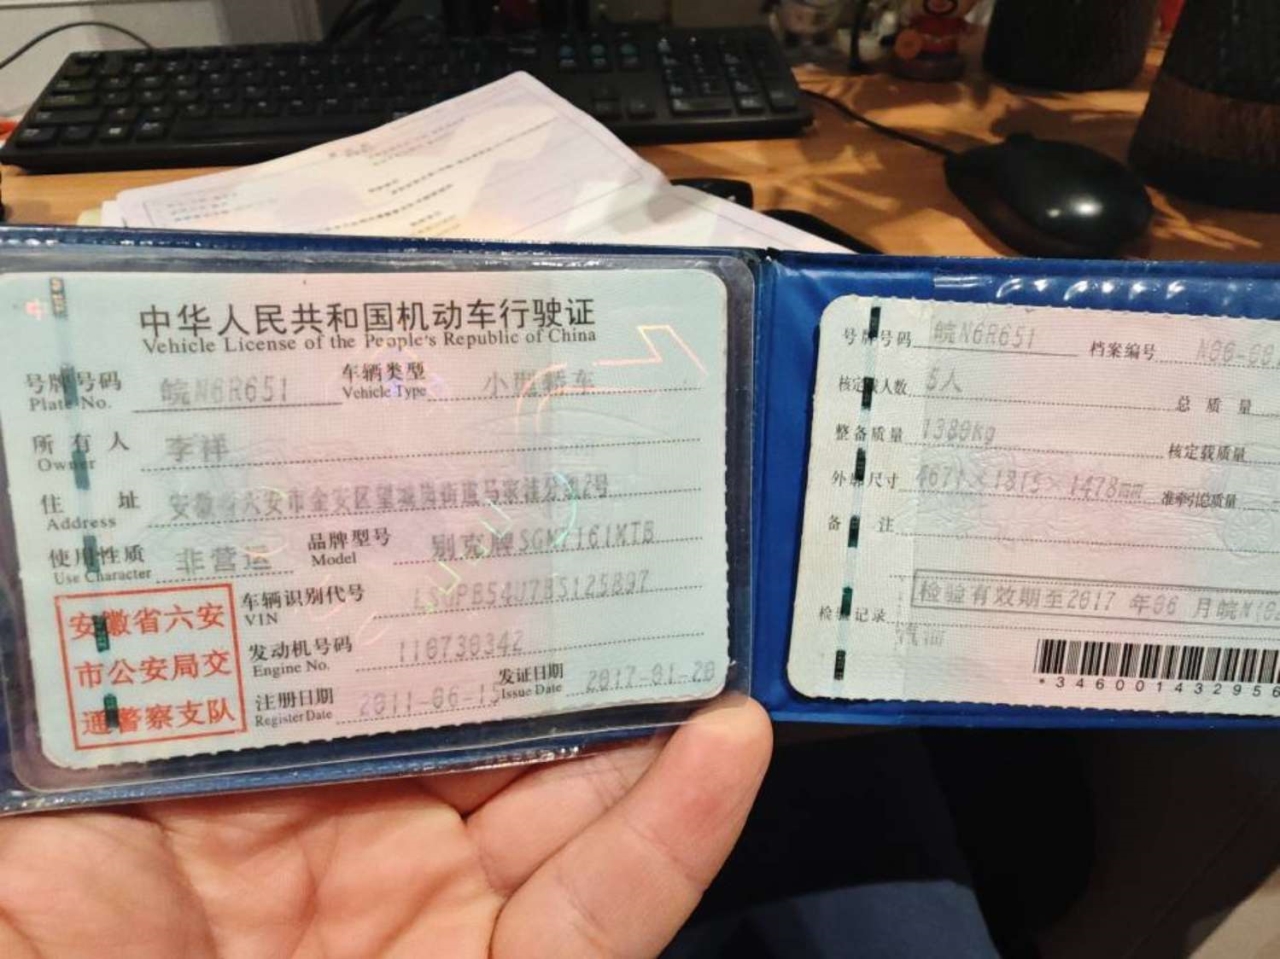 中华人民共和国机动车行驶证
Vehicle License of the People's Republic of China
号牌号码 皖N6R651 车辆类型 小型轿车
Plate No. Vehicle Type
所有人 李祥
Owner
住址 安徽省六安市金安区望城街
Address
使用性质 非营运 品牌型号 别克牌
Use Character Model
车辆识别代号
VIN
发动机号码 110730342
Engine No.
注册日期 2011-06-15 发证日期 2017-01-20
Register Date Issue Date
安徽省六安
市公安局交
通警察支队
号牌号码 皖N6R651 档案编号
核定载人数 5人 总质量
整备质量 1380Kg 核定载质量
外廓尺寸 4671×1815×1478mm 准牵引总质量
备注
检验有效期至2017 年06 月皖N
检验记录
汽油
*346001432956